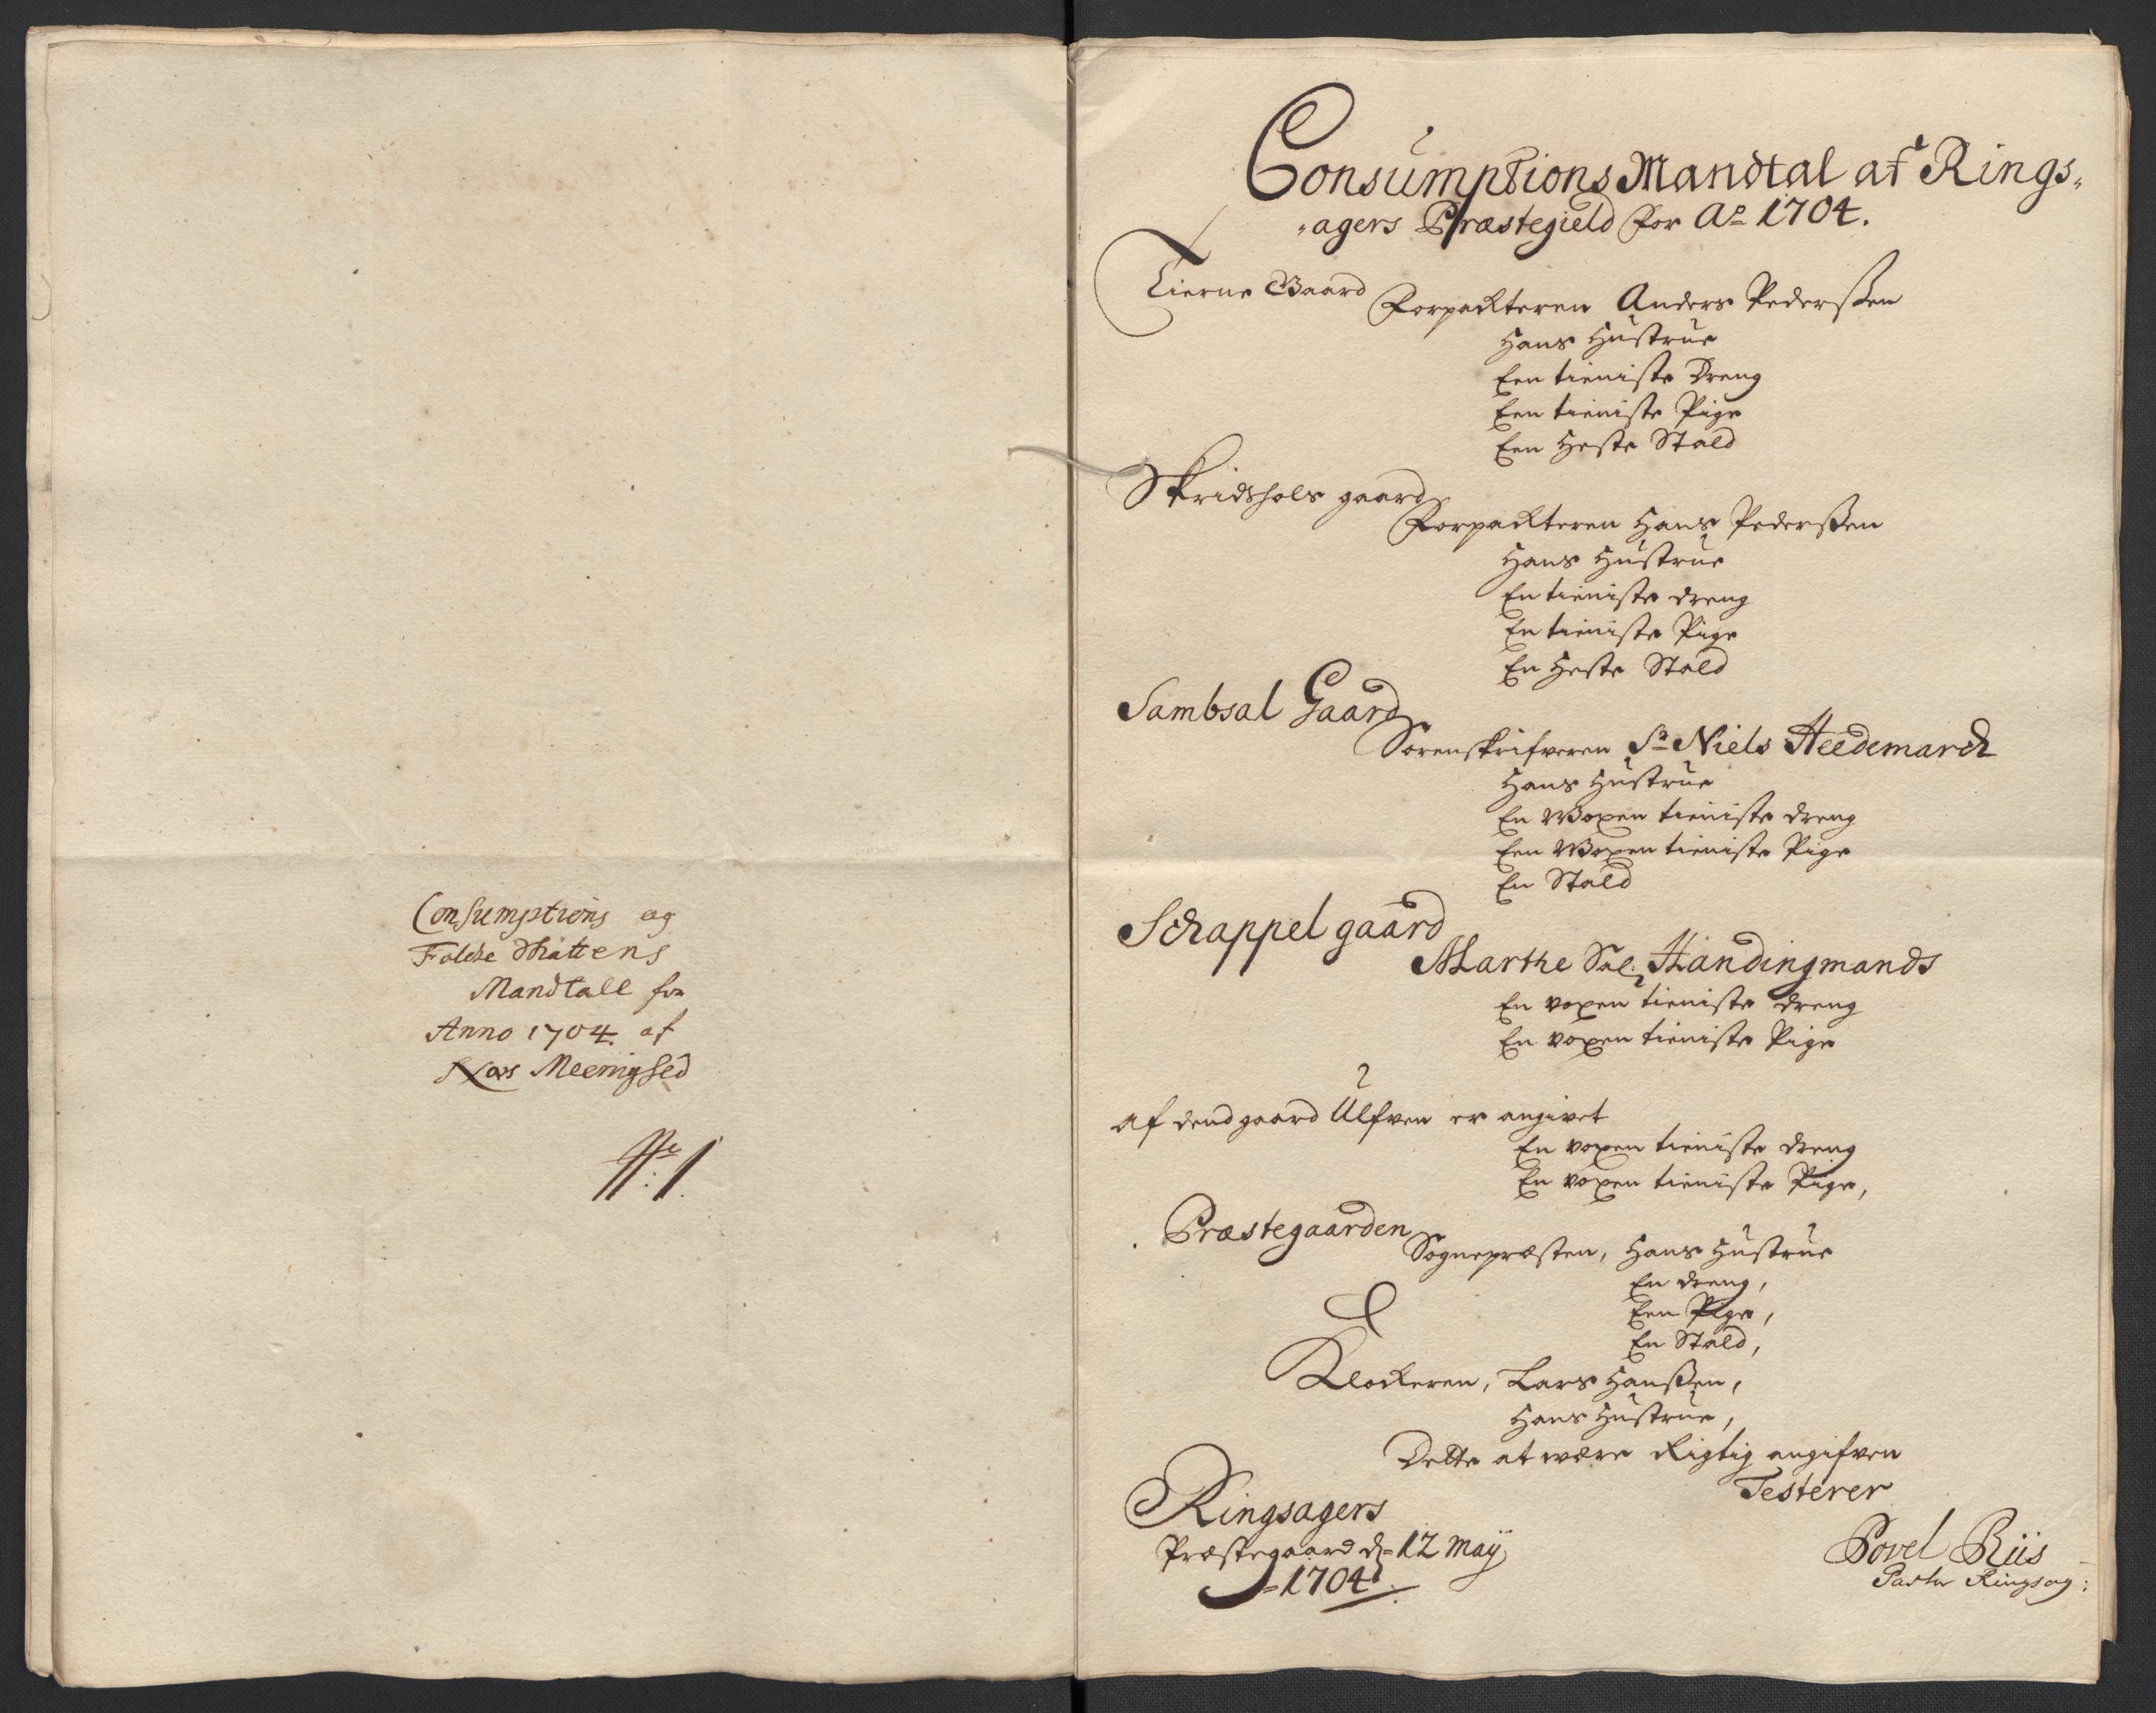 Consumptions og
Folcke Skattens
Mandtall for
Anno 1704. af
Næs Meenighed
No: 1.
Consumptions Mandtal af Rings„
„agers Præstegield for Ao 1704.
Tierne Gaard
Forpackteren Anders Pederßen
Hans Hustrue
Een tieniste Dreng
Een tieniste Pige
Een Heste Stald
Skridshols gaard
Forpackteren Hans Pederßen
Hans Hustrue
En tieniste dreng
En tieniste Pige
En Heste Stald
Sambsal Gaard
Sorenskrifveren Sr Niels Heedemarck
Hans Hustrue
En Woxen tieniste dreng
Een Woxen tieniste Pige
En Stald
Schappel gaard
Marthe Sal: Handingmands
En voxen tieniste dreng
En voxen tieniste Pige
Af dend gaard Ulfven er angivet
En voxen tieniste dreng
En voxen tieniste Pige,
Præstegaarden
Sognepræsten, Hans Hustrue
En dreng,
Een Pige,
En Stald,
Klockeren, Lars Hanßen,
Hans Hustrue,
Dette at være Rigtig angifven
Testerer
Ringsagers
Præstegaard d. 12 Maij
1704.
Povel Riis
Pastor Ringsag: